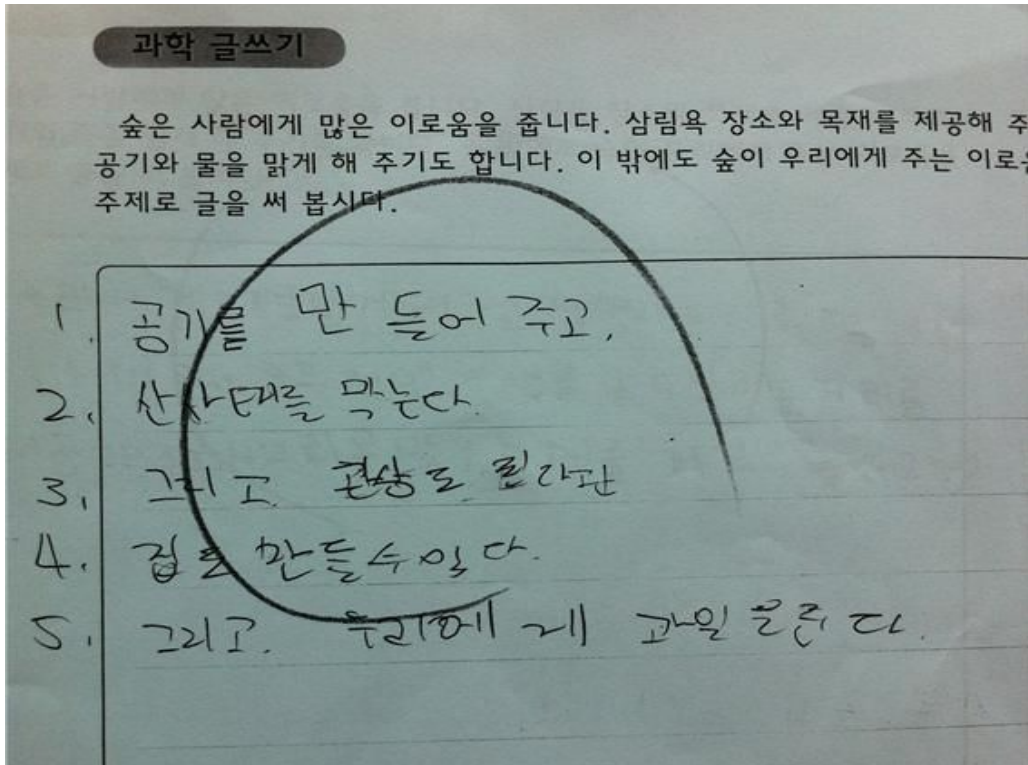 과학 글쓰기
숲은 사람에게 많은 이로움을 줍니다. 삼림욕 장소와 목재를 제공해 주
공기와 물을 맑게 해 주기도 합니다. 이 밖에도 숲이 우리에게 주는 이로운
주제로 글을 써 봅시다.
1. 공기를 만들어 주고,
2. 산사태를 막는다.
3. 그리고
4. 집도 만들수있다.
5. 그리고. 우리에게 과일